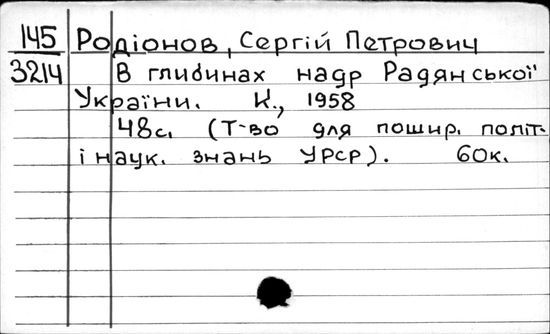 145 Родіонов, Сергій Петрович
3214 В глибинах надр Радянської
України. К., 1958
48с. (Т-во для пошир. політ.
і наук. знань УРСР). 60к.